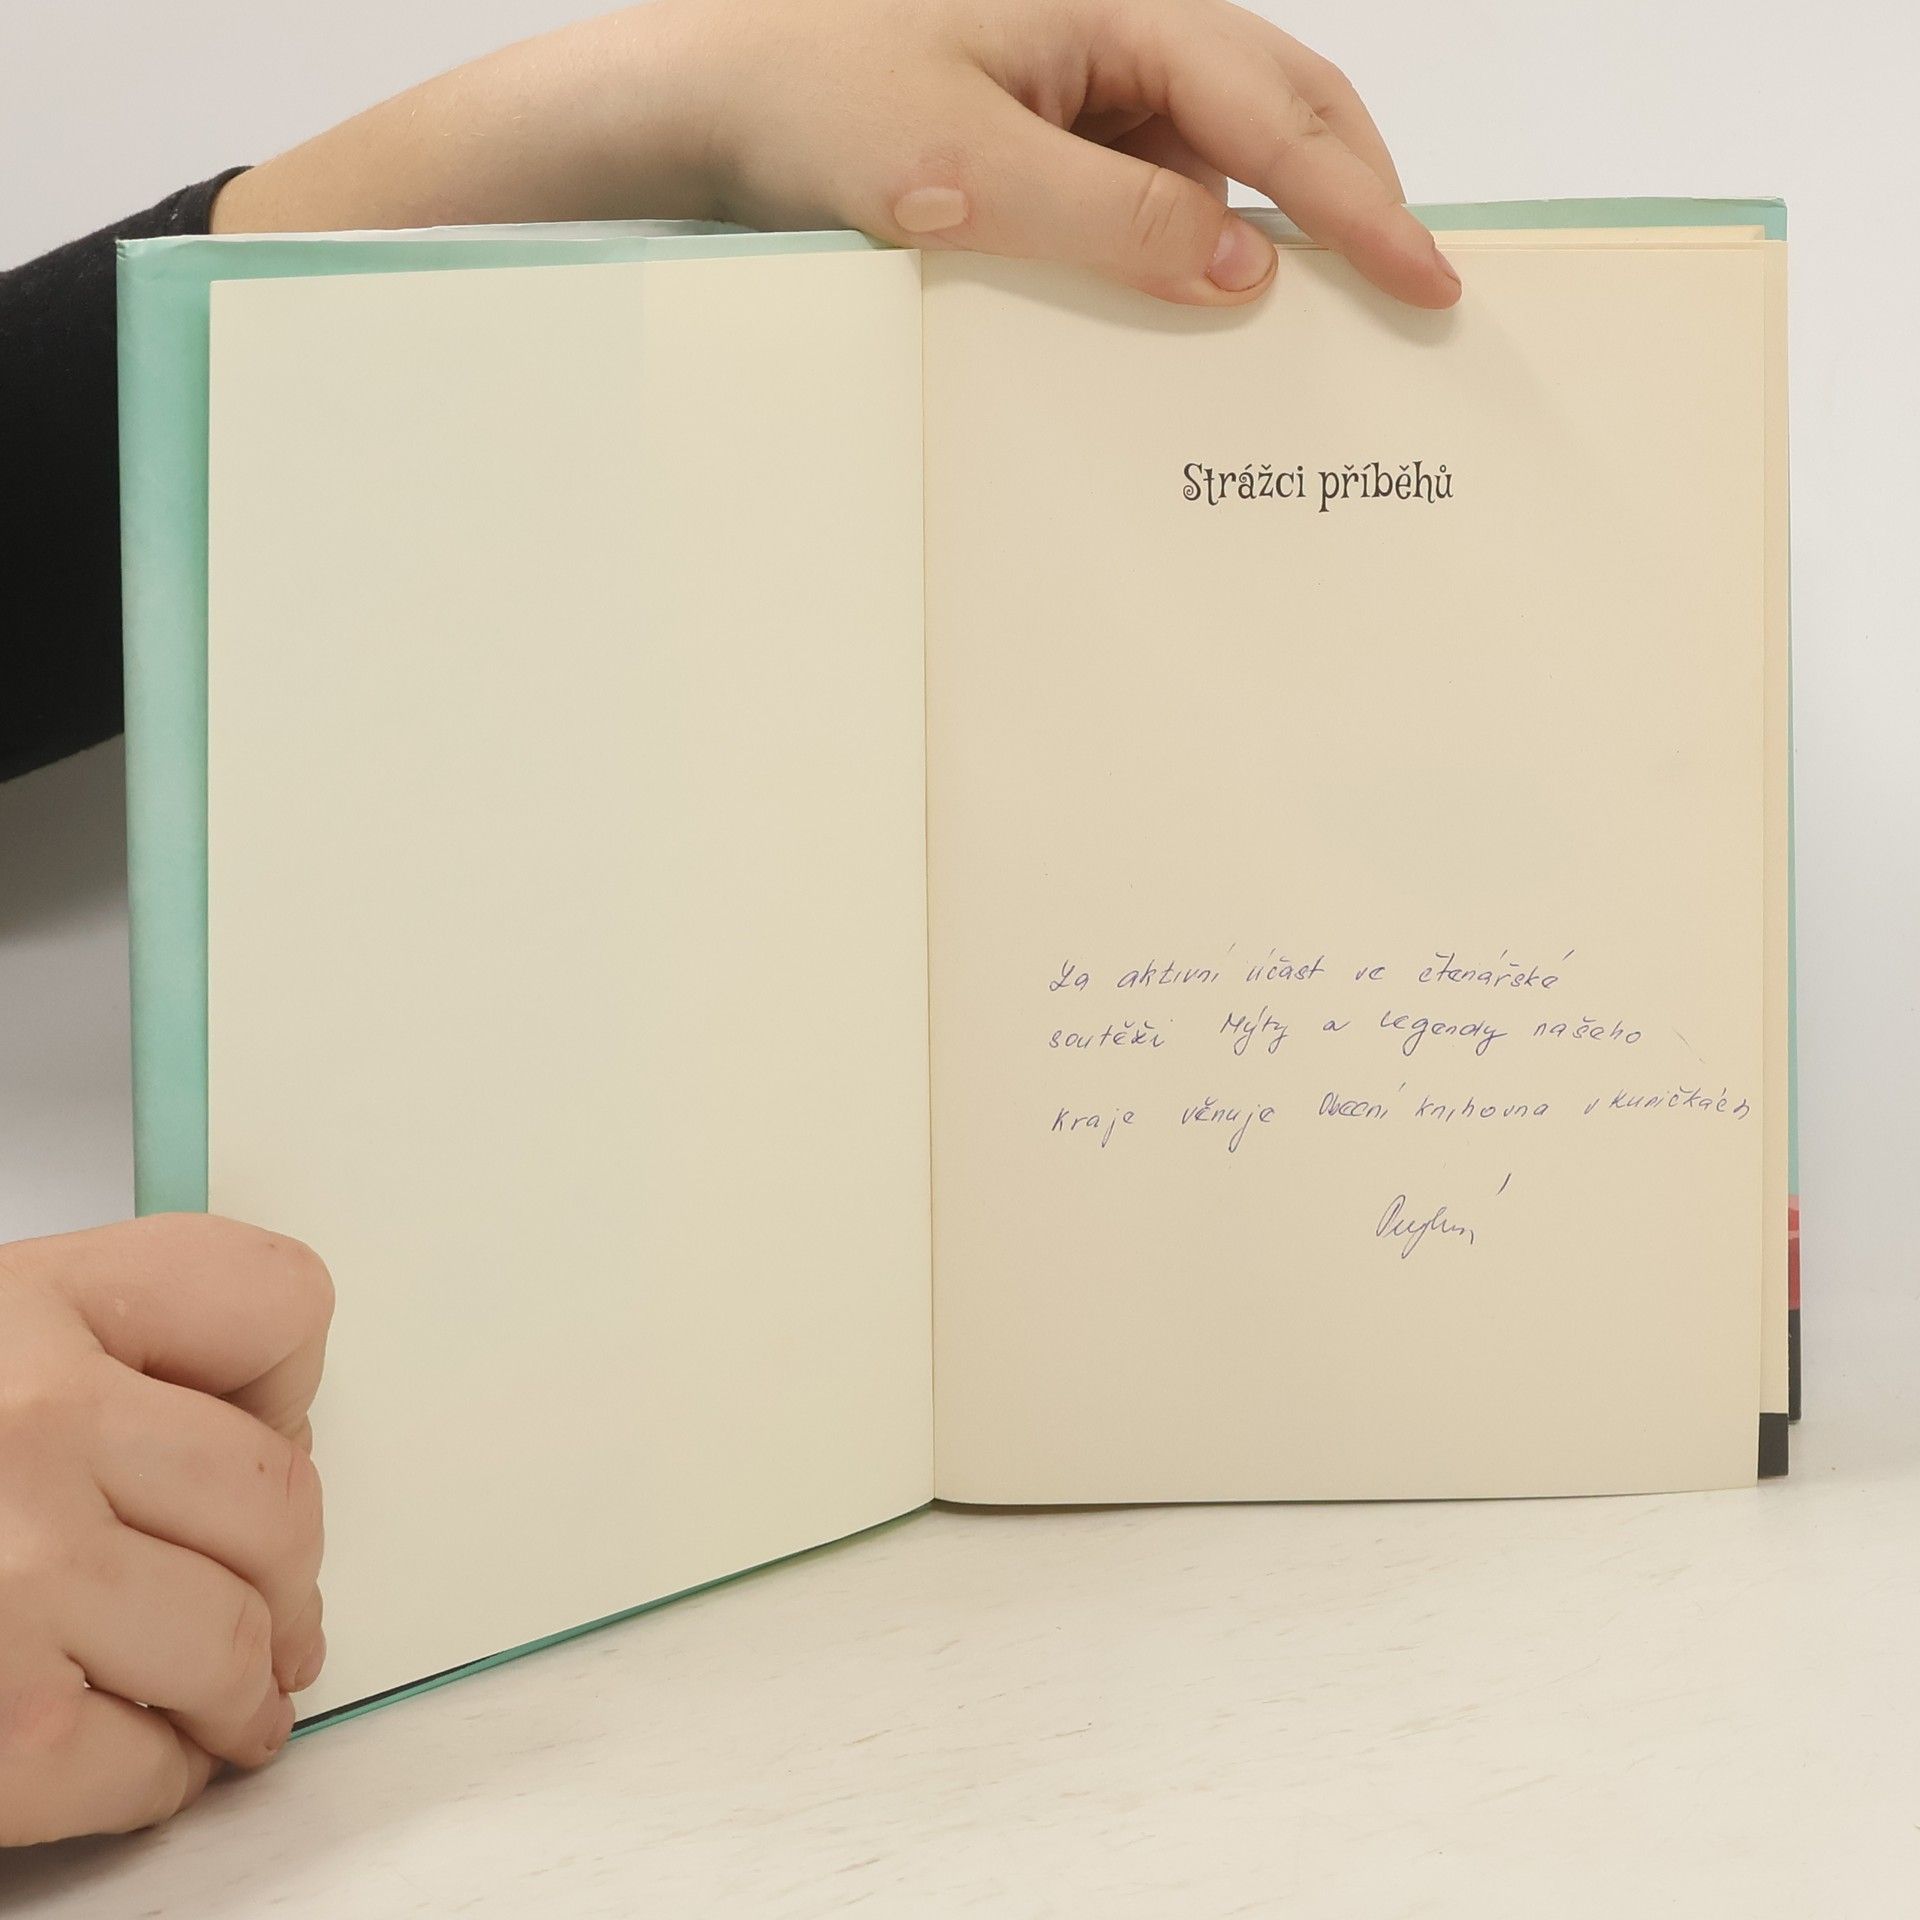 Strážci příběhů
Za aktivní účast ve čtenářské
soutěži Mýty a legendy našeho
kraje věnuje Obecní knihovna v Kuničkách